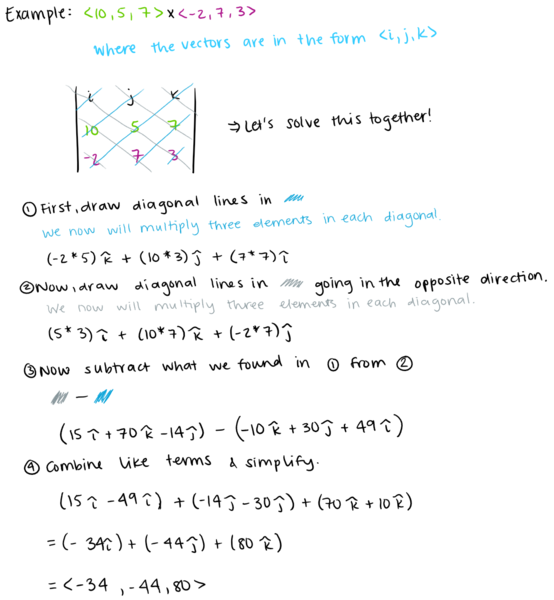 Example: <10, 5, 7> x <-2, 7, 3>
where the vectors are in the form <i, j, k>
i j k
10 5 7
-2 7 3
⇒ Let's solve this together!
① First, draw diagonal lines in
We now will multiply three elements in each diagonal.
(-2*5)k̂ + (10*3)ĵ + (7*7)î
② Now, draw diagonal lines in going in the opposite direction.
We now will multiply three elements in each diagonal.
(5*3)î + (10*7)k̂ + (-2*7)ĵ
③ Now subtract what we found in ① from ②
—
(15î + 70k̂ - 14ĵ) - (-10k̂ + 30ĵ + 49î)
④ Combine like terms & simplify.
(15î - 49î) + (-14ĵ - 30ĵ) + (70k̂ + 10k̂)
= (-34î) + (-44ĵ) + (80k̂)
= <-34, -44, 80>